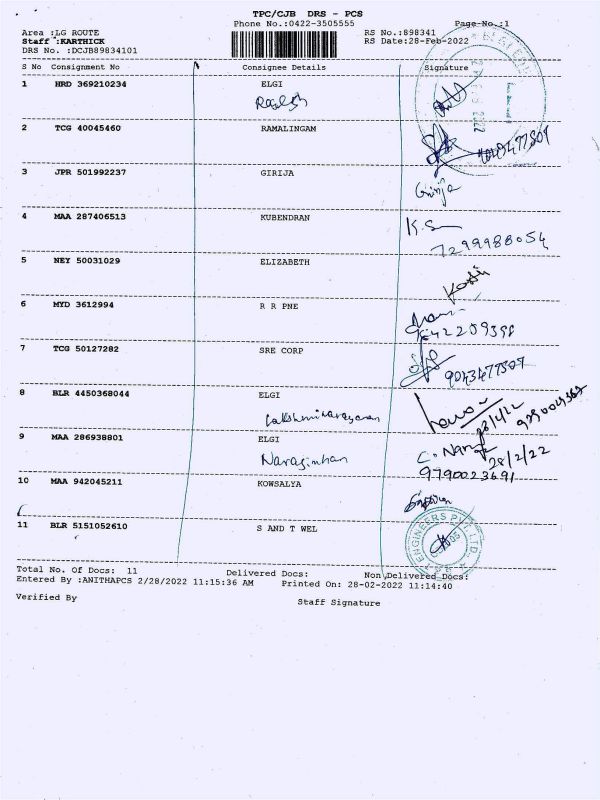 TPC/CJB DRS - PCS
Phone No.:0422-3505555 Page No.:1
Area :LG ROUTE RS No.:898341
Staff :KARTHICK RS Date:28-Feb-2022
DRS No. :DCJB89834101
S No Consignment No Consignee Details Signature
1 HRD 369210234 ELGI
2 TCG 40045460 RAMALINGAM
3 JPR 501992237 GIRIJA
Girija
4 MAA 287406513 KUBENDRAN K.S
7299988054
5 NEY 50031029 ELIZABETH
6 MYD 3612994 R R PNE
7 TCG 50127282 SRE CORP
9043477507
8 BLR 4450368044 ELGI
Lakshminarayanan
28/2/22
9 MAA 286938801 ELGI
Narasimhan
28/2/22
9790023691
10 MAA 942045211 KOWSALYA
ENGINEERS PVT LTD
11 BLR 5151052610 S AND T WEL
Total No. Of Docs: 11 Delivered Docs: Non Delivered Docs:
Entered By :ANITHAPCS 2/28/2022 11:15:36 AM Printed On: 28-02-2022 11:14:40
Verified By Staff Signature